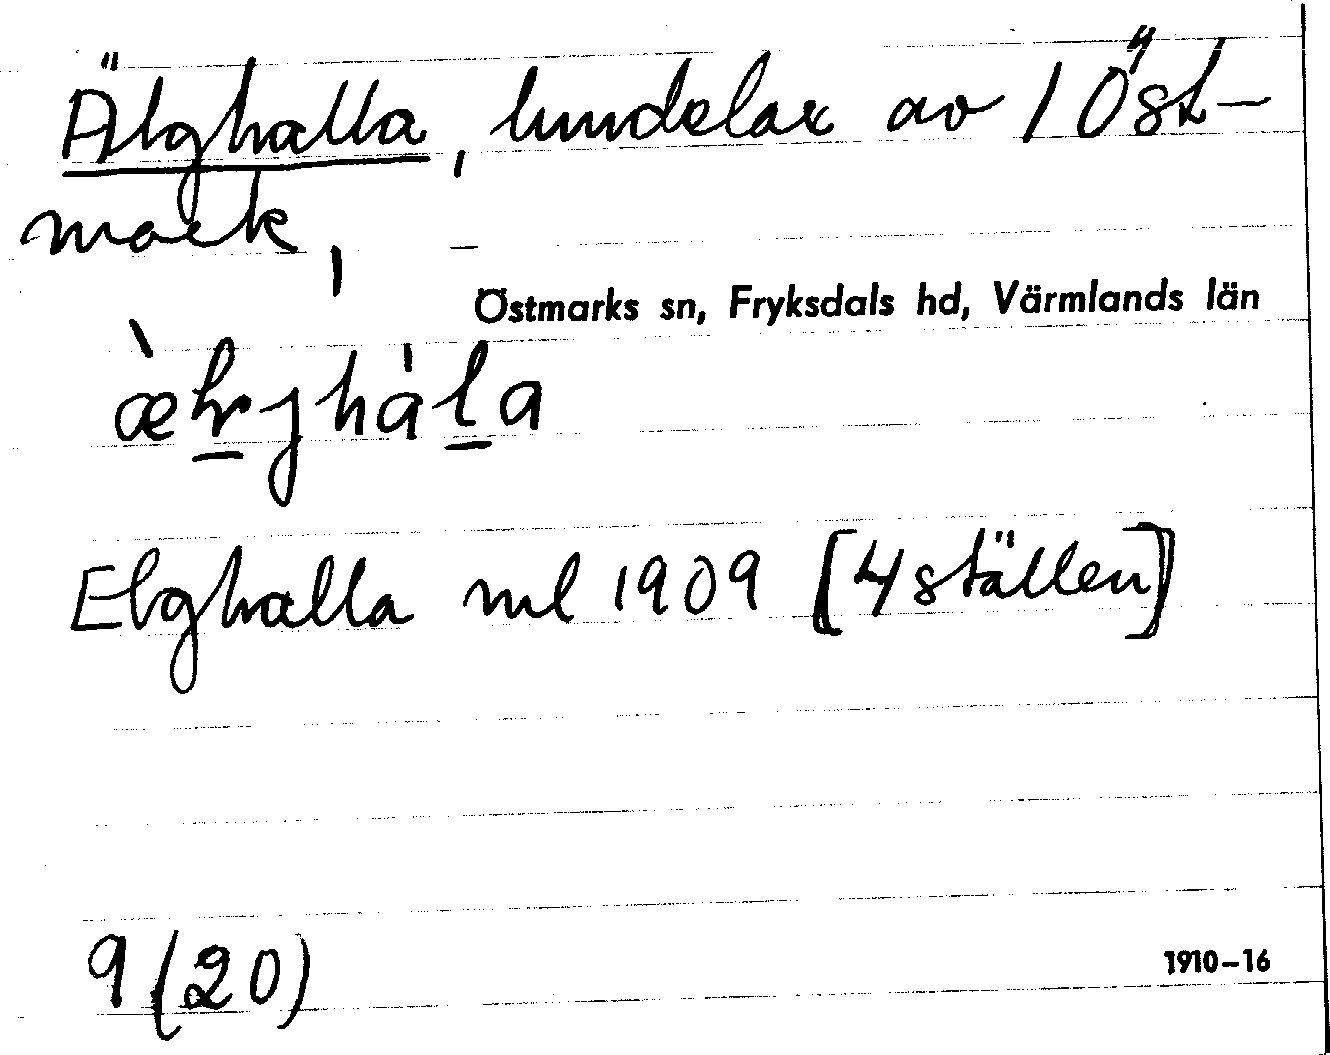 Älghalla, lundelar av 1 Öst-
mark,
Östmarks sn, Fryksdals hd, Värmlands län
Elghalla ml 1909 [4 ställen]
9 (20)
1910-16